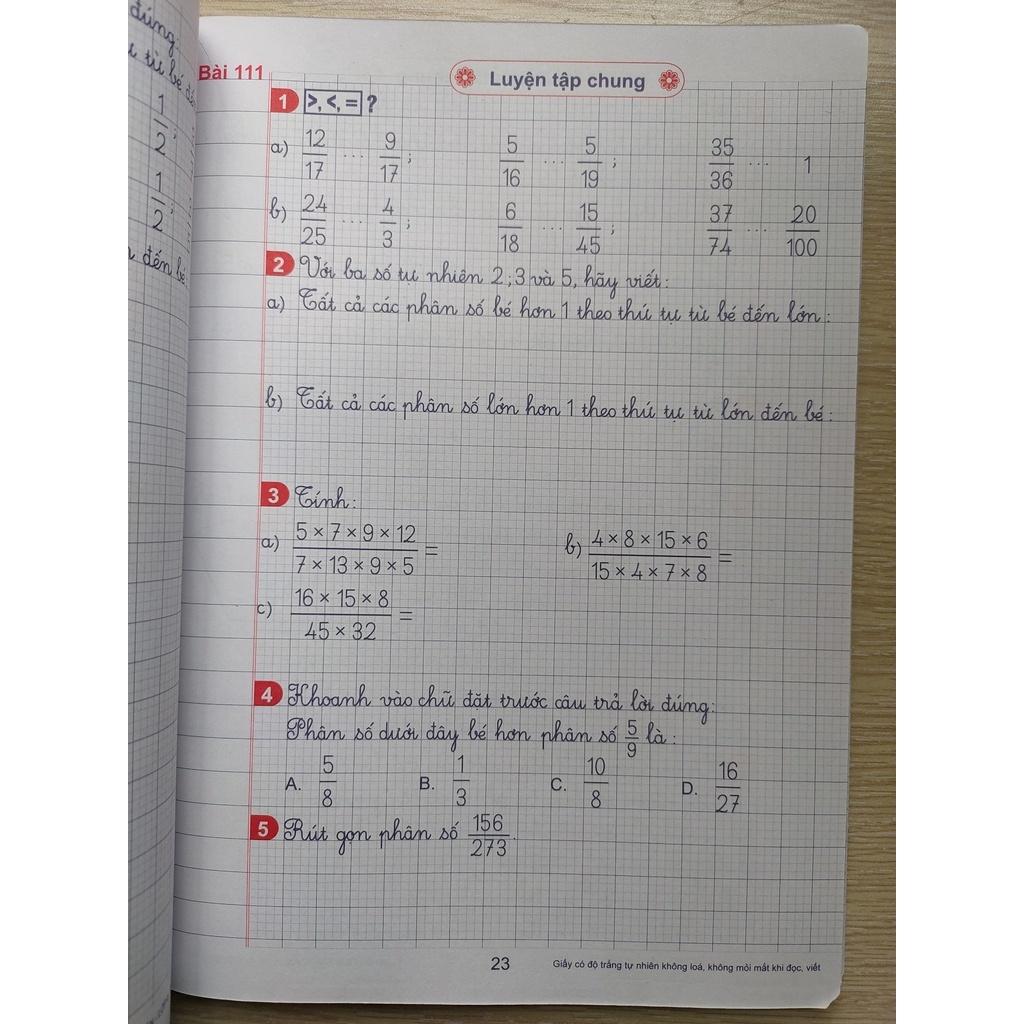 đúng:
từ bé đến
1/2;
1/2;
đến bé
Bài 111
Luyện tập chung
1 >, <, = ?
a) 12/17 ... 9/17; 5/16 ... 5/19; 35/36 ... 1
b) 24/25 ... 4/3; 6/18 ... 15/45; 37/74 ... 20/100
2 Với ba số tự nhiên 2; 3 và 5, hãy viết:
a) Tất cả các phân số bé hơn 1 theo thứ tự từ bé đến lớn:
b) Tất cả các phân số lớn hơn 1 theo thứ tự từ lớn đến bé:
3 Tính:
a) (5 × 7 × 9 × 12)/(7 × 13 × 9 × 5) = b) (4 × 8 × 15 × 6)/(15 × 4 × 7 × 8) =
c) (16 × 15 × 8)/(45 × 32) =
4 Khoanh vào chữ đặt trước câu trả lời đúng:
Phân số dưới đây bé hơn phân số 5/9 là:
A. 5/8 B. 1/3 C. 10/8 D. 16/27
5 Rút gọn phân số 156/273.
23
Giấy có độ trắng tự nhiên không loá, không mỏi mắt khi đọc, viết